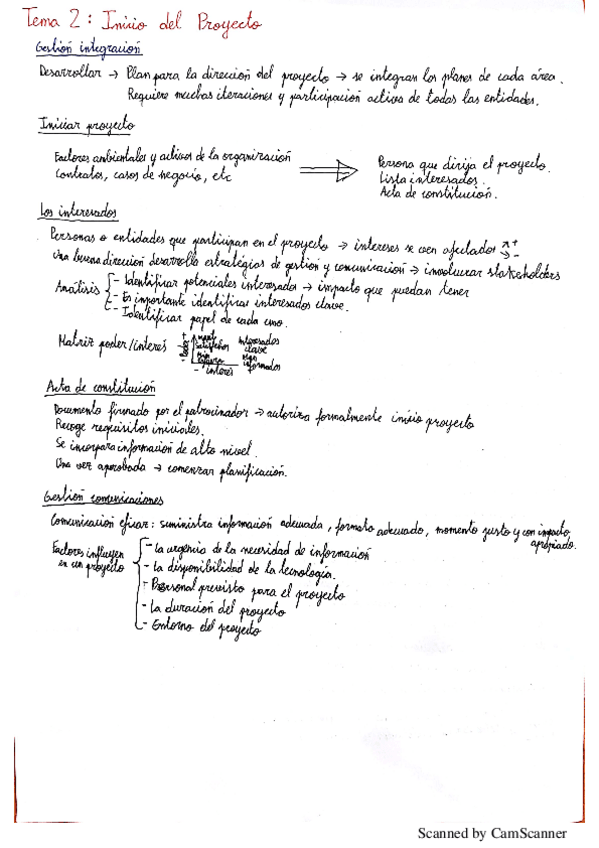 Tema 2: Inicio del Proyecto
Gestión integración
Desarrollar → Plan para la dirección del proyecto → se integran los planes de cada área.
Requiere muchas iteraciones y participación activa de todas las entidades.
Iniciar proyecto
Factores ambientales y activos de la organización
Contratos, casos de negocio, etc
Persona que dirija el proyecto.
Lista interesados.
Acta de constitución.
Los interesados
Personas o entidades que participan en el proyecto → intereses se ven afectados + -
Una buena dirección desarrolla estrategias de gestión y comunicación → involucrar stakeholders
Análisis
- Identificar potenciales interesados → impacto que puedan tener
- Es importante identificar interesados clave.
- Identificar papel de cada uno.
Matriz poder/interés
+ mant. satisfechos interesados clave
- informados
- interés
Acta de constitución
Documento firmado por el patrocinador → autoriza formalmente inicio proyecto
Recoge requisitos iniciales.
Se incorpora información de alto nivel.
Una vez aprobada → comenzar planificación.
Gestión comunicaciones
Comunicación eficaz: suministra información adecuada, formato adecuado, momento justo y con impacto apropiado.
Factores influyen en un proyecto
- La urgencia de la necesidad de información
- La disponibilidad de la tecnología.
- Personal previsto para el proyecto
- La duración del proyecto
- Entorno del proyecto
Scanned by CamScanner